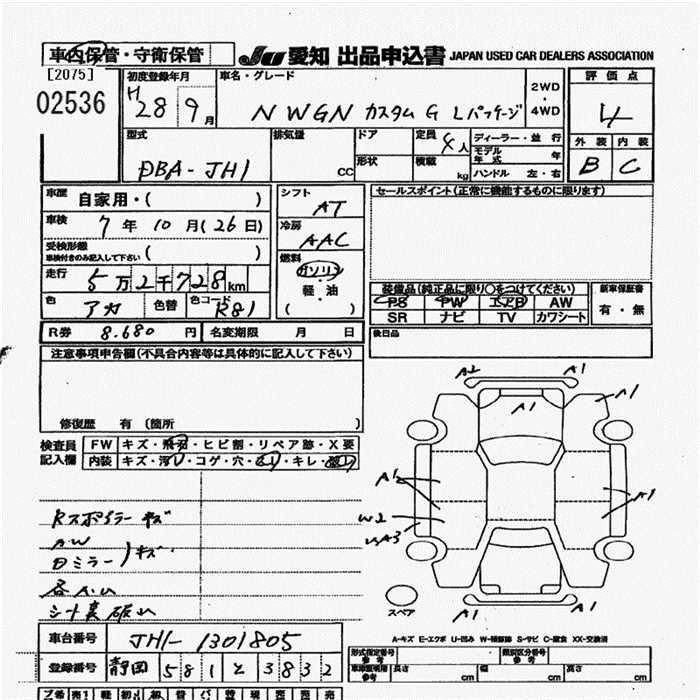 車内保管・守衛保管
JU 愛知 出品申込書 JAPAN USED CAR DEALERS ASSOCIATION
[2075]
02536
初度登録年月 H28 9月
車名・グレード
N WGN カスタム G Lパッケージ
2WD・4WD
評価点
4
外装 内装
B C
型式
DBA-JH1
排気量 CC
ドア
形状
定員 4人
積載 kg
ディーラー・並行
モデル年式 年
ハンドル 左・右
車歴 自家用・( )
車検 7年10月(26日)
受検形態 ( )
車検付きのみ記入して下さい
走行 5万2千728km
色 アカ 色替 色コード R81
シフト AT
冷房 AAC
燃料 ガソリン・軽・油 ( )
セールスポイント(正常に機能するものに限ります)
装備品(純正品に限り○をつけてください)
PS PW エアB AW
SR ナビ TV カワシート
新車保証書
有・無
後日品
R券 8.680円 名変期限 月 日
注意事項申告欄(不具合内容等は具体的に記入して下さい)
修復歴 有 〔箇所 〕
検査員記入欄
FW キズ・飛石・ヒビ割・リペア跡・X要
内装 キズ・汚れ・コゲ・穴・スレ・キレ・
Rスポイラーキズ
AW
Dミラー)キズ
各A.U
シート裏破れ
A2 A1
A1 A1
A1 A1
W2
A1 A1
スペア
A-キズ E-エクボ U-凹み W-補修跡 S-サビ C-腐食 XX-交換済
車台番号 JH1-1301805
登録番号 静岡 581 と 3832
型式指定番号 参考
類別区分番号 参考
車庫証明用 参考 長さ cm 幅 cm 高さ cm